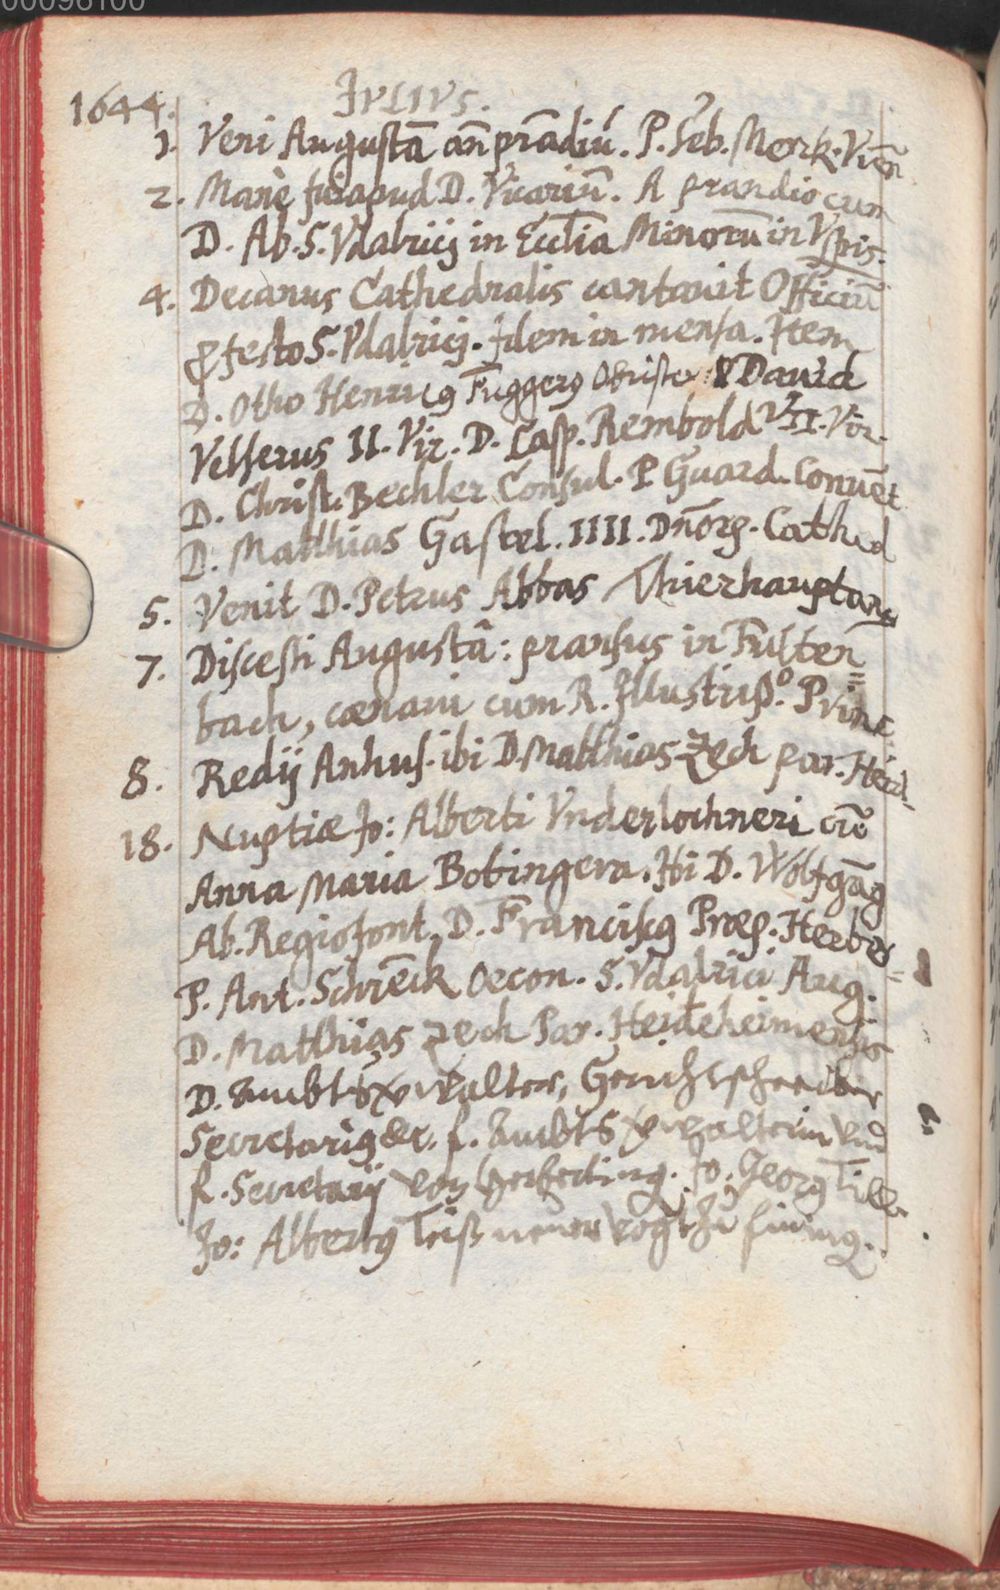 00096100
1644. IVLIVS.
1. Veni Augustā añ prādiū. P. Seb. Merck. Viēn
2. Manè fui apud D. Vicariū. A prandio cum
D. Ab. S. Vdalricj in Ecctia Minorū in Vspis.
4. Decanus Cathedralis cantauit Officiū
ꝓ festo S. Vdalricj. Idem in mensa. Item
D. Otho Henricꝰ Fuggerꝰ Obrister: D Dauid
Velserus II. Vir. D. Casp. Rembold VII. Vir.
D. Christ. Bechler Consul. P Guard. Conuēt.
D. Matthias Gastel. IIII. Dnorꝫ. Cathed
5. Venit D. Petrus Abbas Thierhauptanꝰ
7. Discessi Augustâ: pransus in Fulten=
bach, cœnaui cum R. Illustriß.º Princ.
8. Redij Anhus. ibi D. Matthias Zech par. Heid_
18. Nuptiæ Jo: Alberti Vnderlochneri cū
Anna Maria Bobingera. Hi D. Wolfgāg
Ab. Regiofont. D. Franciscꝰ Præp. Herbr=
P. Ant. Schrēck Oecon. S. Vdalrici Aug.
D. Matthias Zech Par. Heideheimensis
D. Ambtsverwalter, Gerichtschreiber
Secretariꝰ &c. f. Ambts verwalterin vnd
f. Secretarij von Herberting. Jo. Georg
Jo: Albertꝰ neuer vogt zu fining.